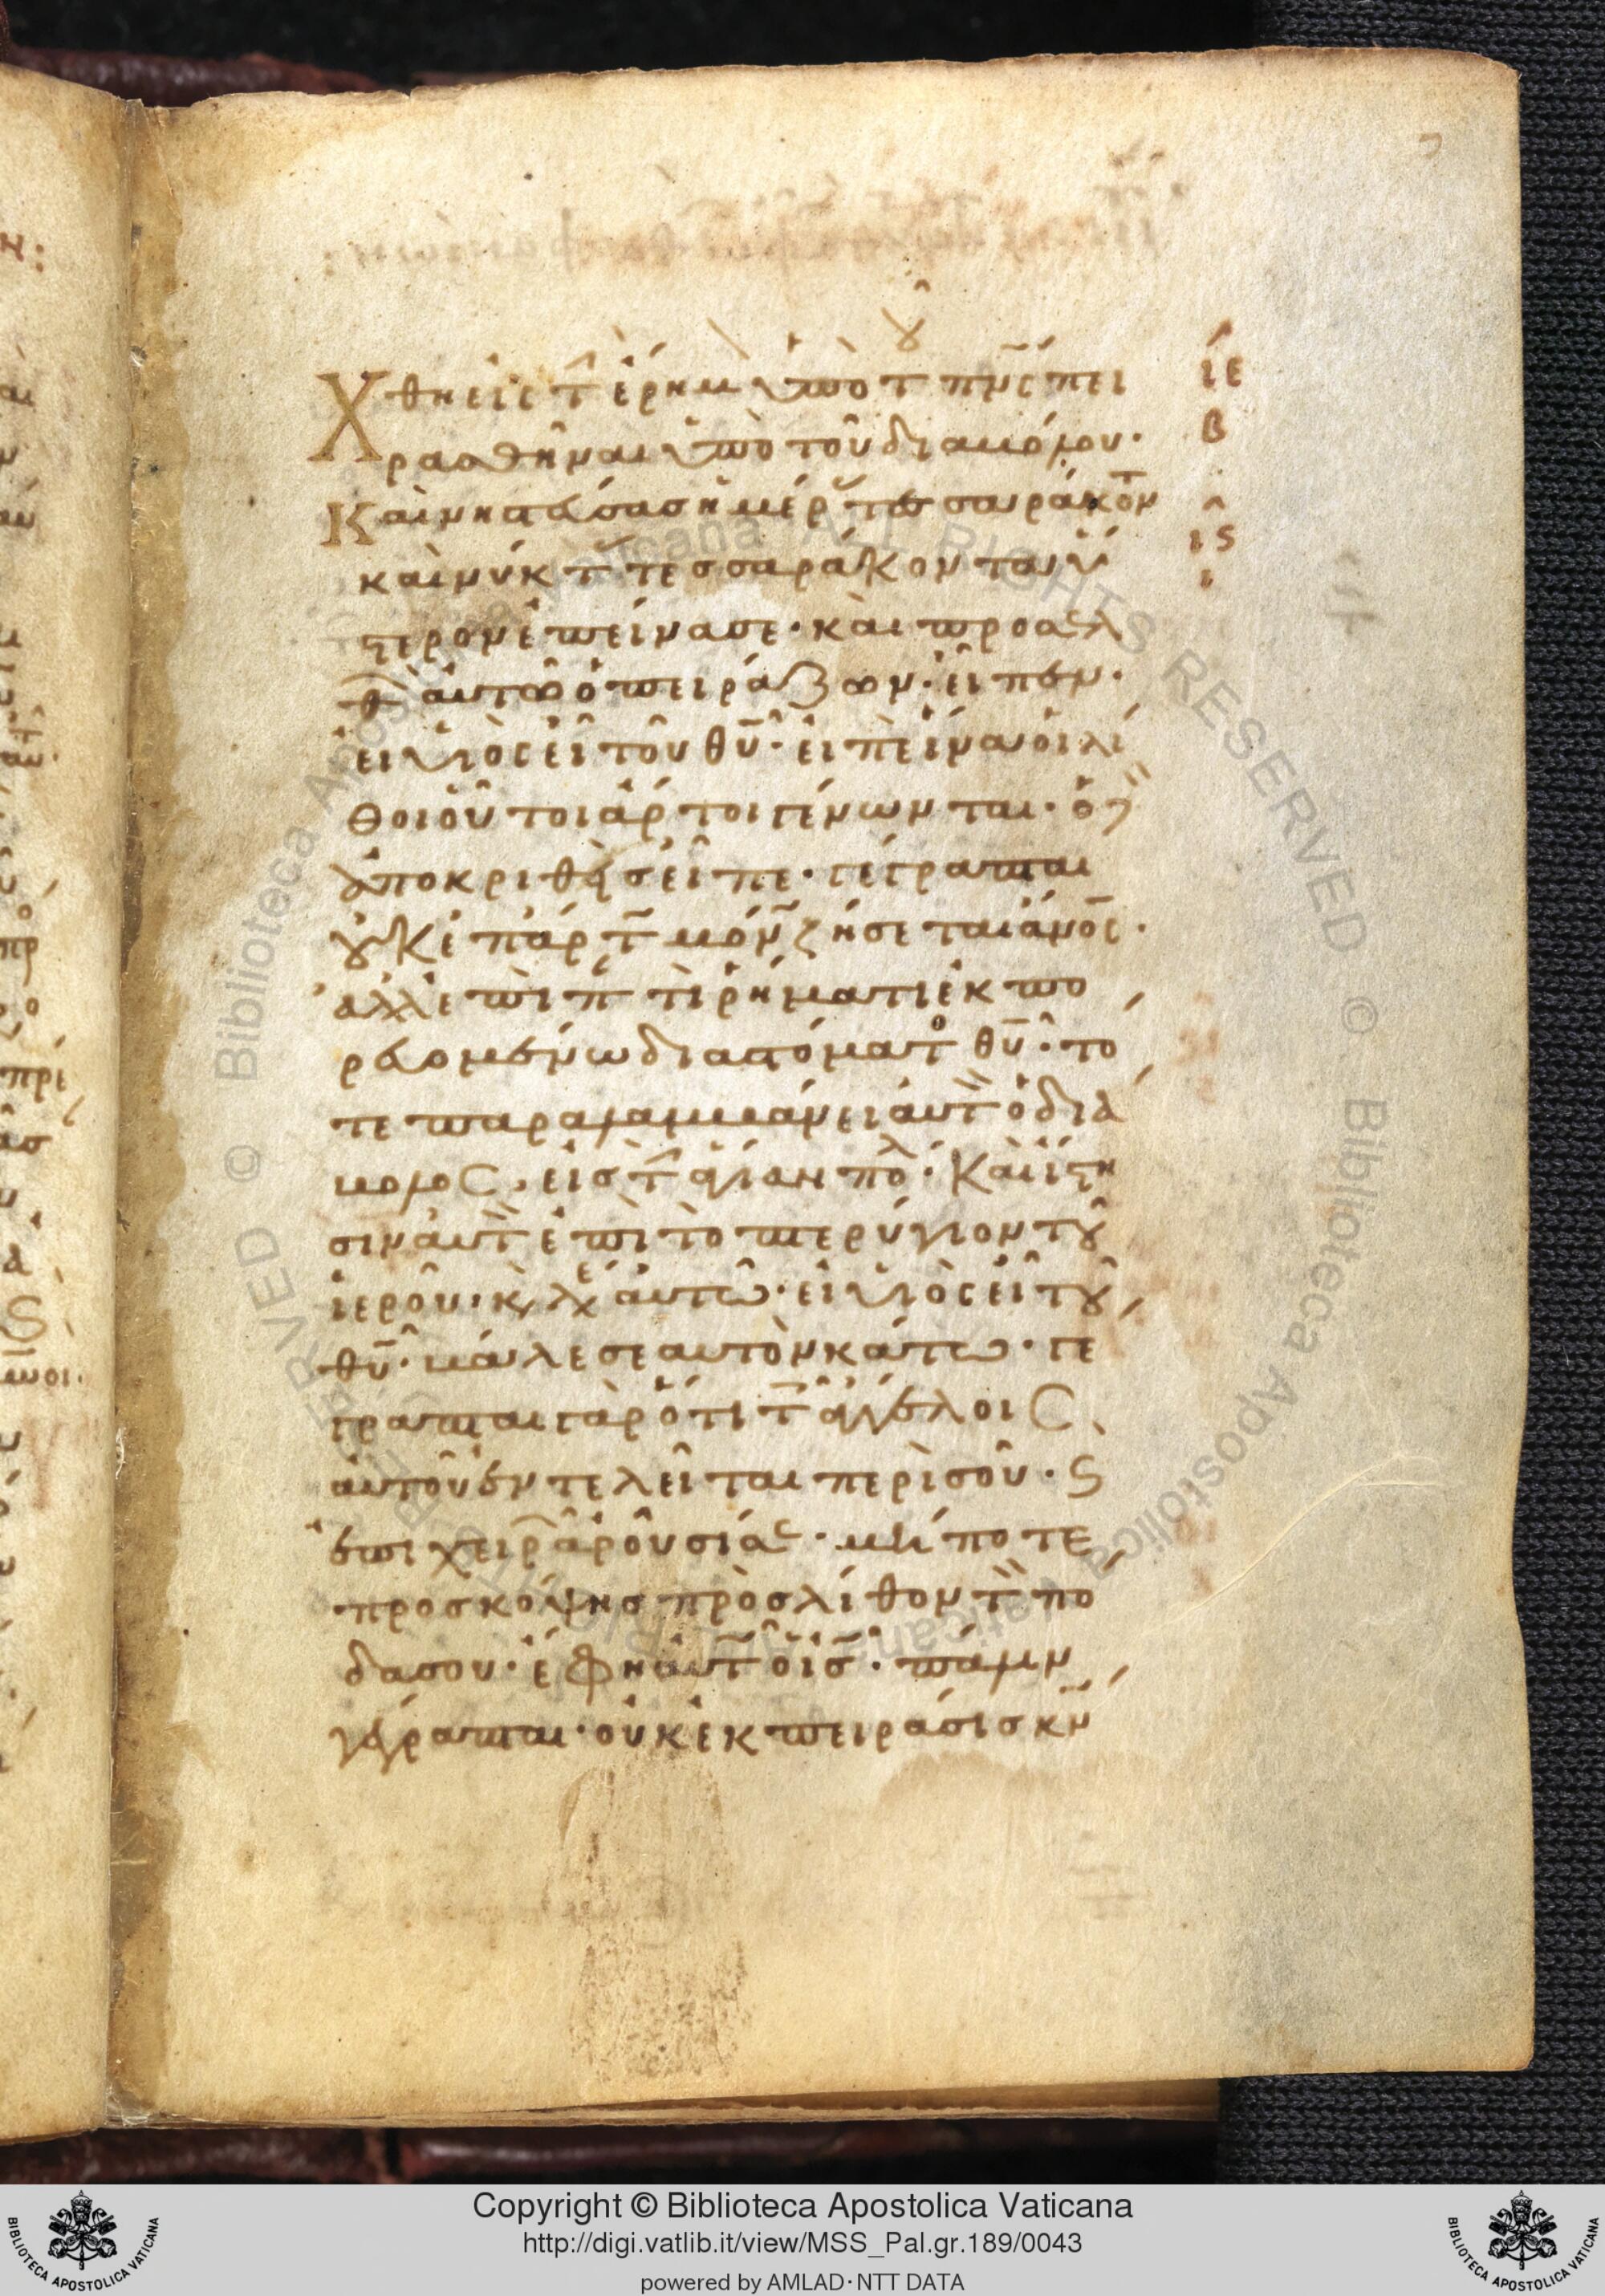 χθη εἰς τ ἔρημ ὑπὸ τοῦ πνς πει
ρασθῆναι ὑπὸ τοῦ διαβόλου·
Καὶ νηστεύσας ἡμέρ τεσσαράκοντ
καὶ νύκτ τεσσαράκοντα ὕ
στερον ἐπείνασε· καὶ προσελ
θ αὐτῶ ὁ πειράζων· εἶπεν·
εἰ υἱὸς εἶ τοῦ θυ· εἰπὲ ἵνα οἱ λί
θοι οὗτοι ἄρτοι γένωνται· ὁ δ
ἀποκριθεὶς εἶπε· γέγραπται
οὐκ ἐπ ἄρτ μόν ζήσεται ἄνος·
ἀλλ ἐπὶ π τὶ ῥήματι ἐκπο
ρευομένω διὰ στόματ θυ· τό
τε παραλαμβάνει αὐτ ὁ διά
βολος· εἰς τ ἁγίαν πολ· Καὶ ἵστη
σιν αὐτ ἐπὶ τὸ πτερύγιον τοῦ
ἱεροῦ· κ λέγ αὐτῶ· εἰ υἱὸς εἶ τοῦ
θυ· βάλε σεαυτὸν κάτω· γέ
γραπται γὰρ ὅτι τ ἀγγέλοις
αὐτοῦ ἐντελεῖται περὶ σοῦ· ς
ἐπὶ χειρ ἀροῦσί σε· μήποτε
προσκόψης πρὸς λίθον τ πό
δα σου· ἔφη αὐτ ὁ ις· πάλιν
γέγραπται· οὐκ ἐκπειράσις κν
ιε
β
ις
Copyright © Biblioteca Apostolica Vaticana
http://digi.vatlib.it/view/MSS_Pal.gr.189/0043
powered by AMLAD·NTT DATA
BIBLIOTECA APOSTOLICA VATICANA
BIBLIOTECA APOSTOLICA VATICANA